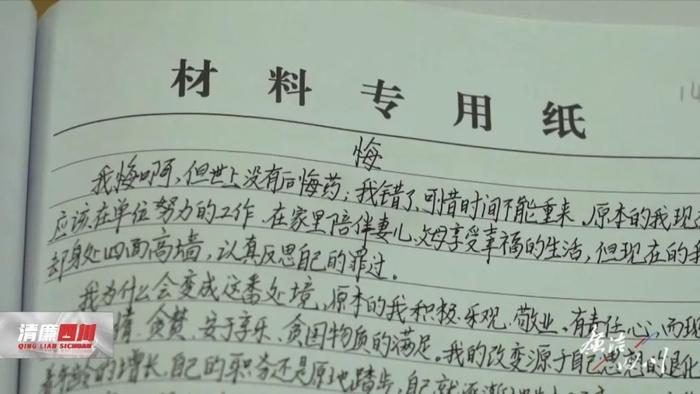 材料专用纸
14
悔
我悔啊,但世上没有后悔药;我错了,可惜时间不能重来。原本的我现
应该在单位努力的工作,在家里陪伴妻儿、父母享受幸福的生活,但现在的我
却身处四面高墙,认真反思自己的罪过。
我为什么会变成这番处境,原本的我积极、乐观、敬业、有责任心,而现
情、贪婪、安于享乐、贪图物质的满足。我的改变源于自己思想的退化
着年龄的增长,自己的职务还是原地踏步,自己就逐渐
清廉四川
QING LIAN SICHUAN
廉洁四川